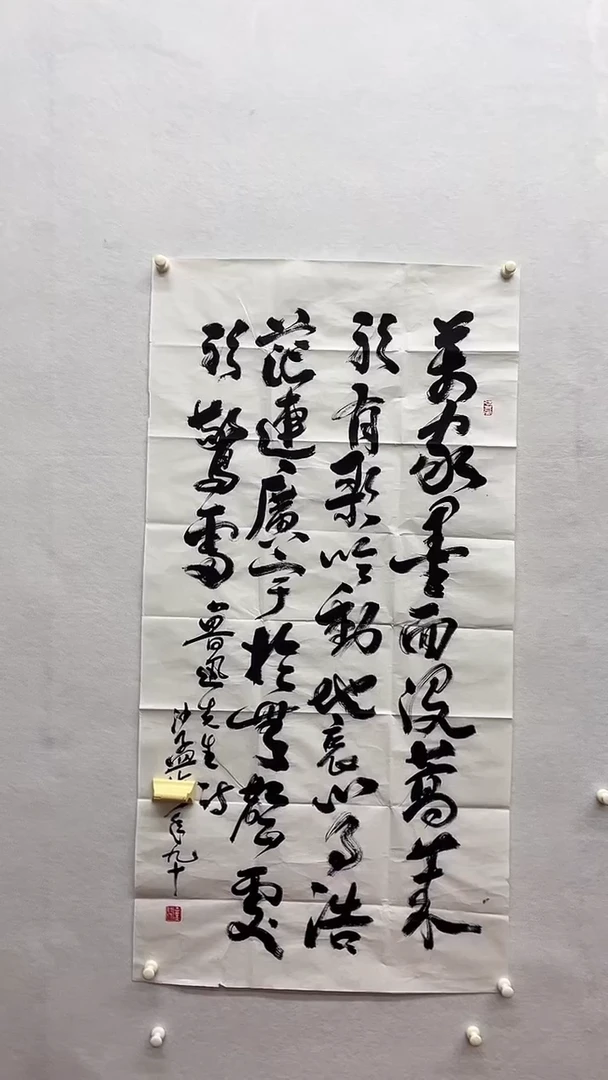 萬家墨面没蒿萊
敢有歌吟動地哀心事浩
茫連廣宇於無聲處
聽驚雷 魯迅先生詩
沙孟 年九十